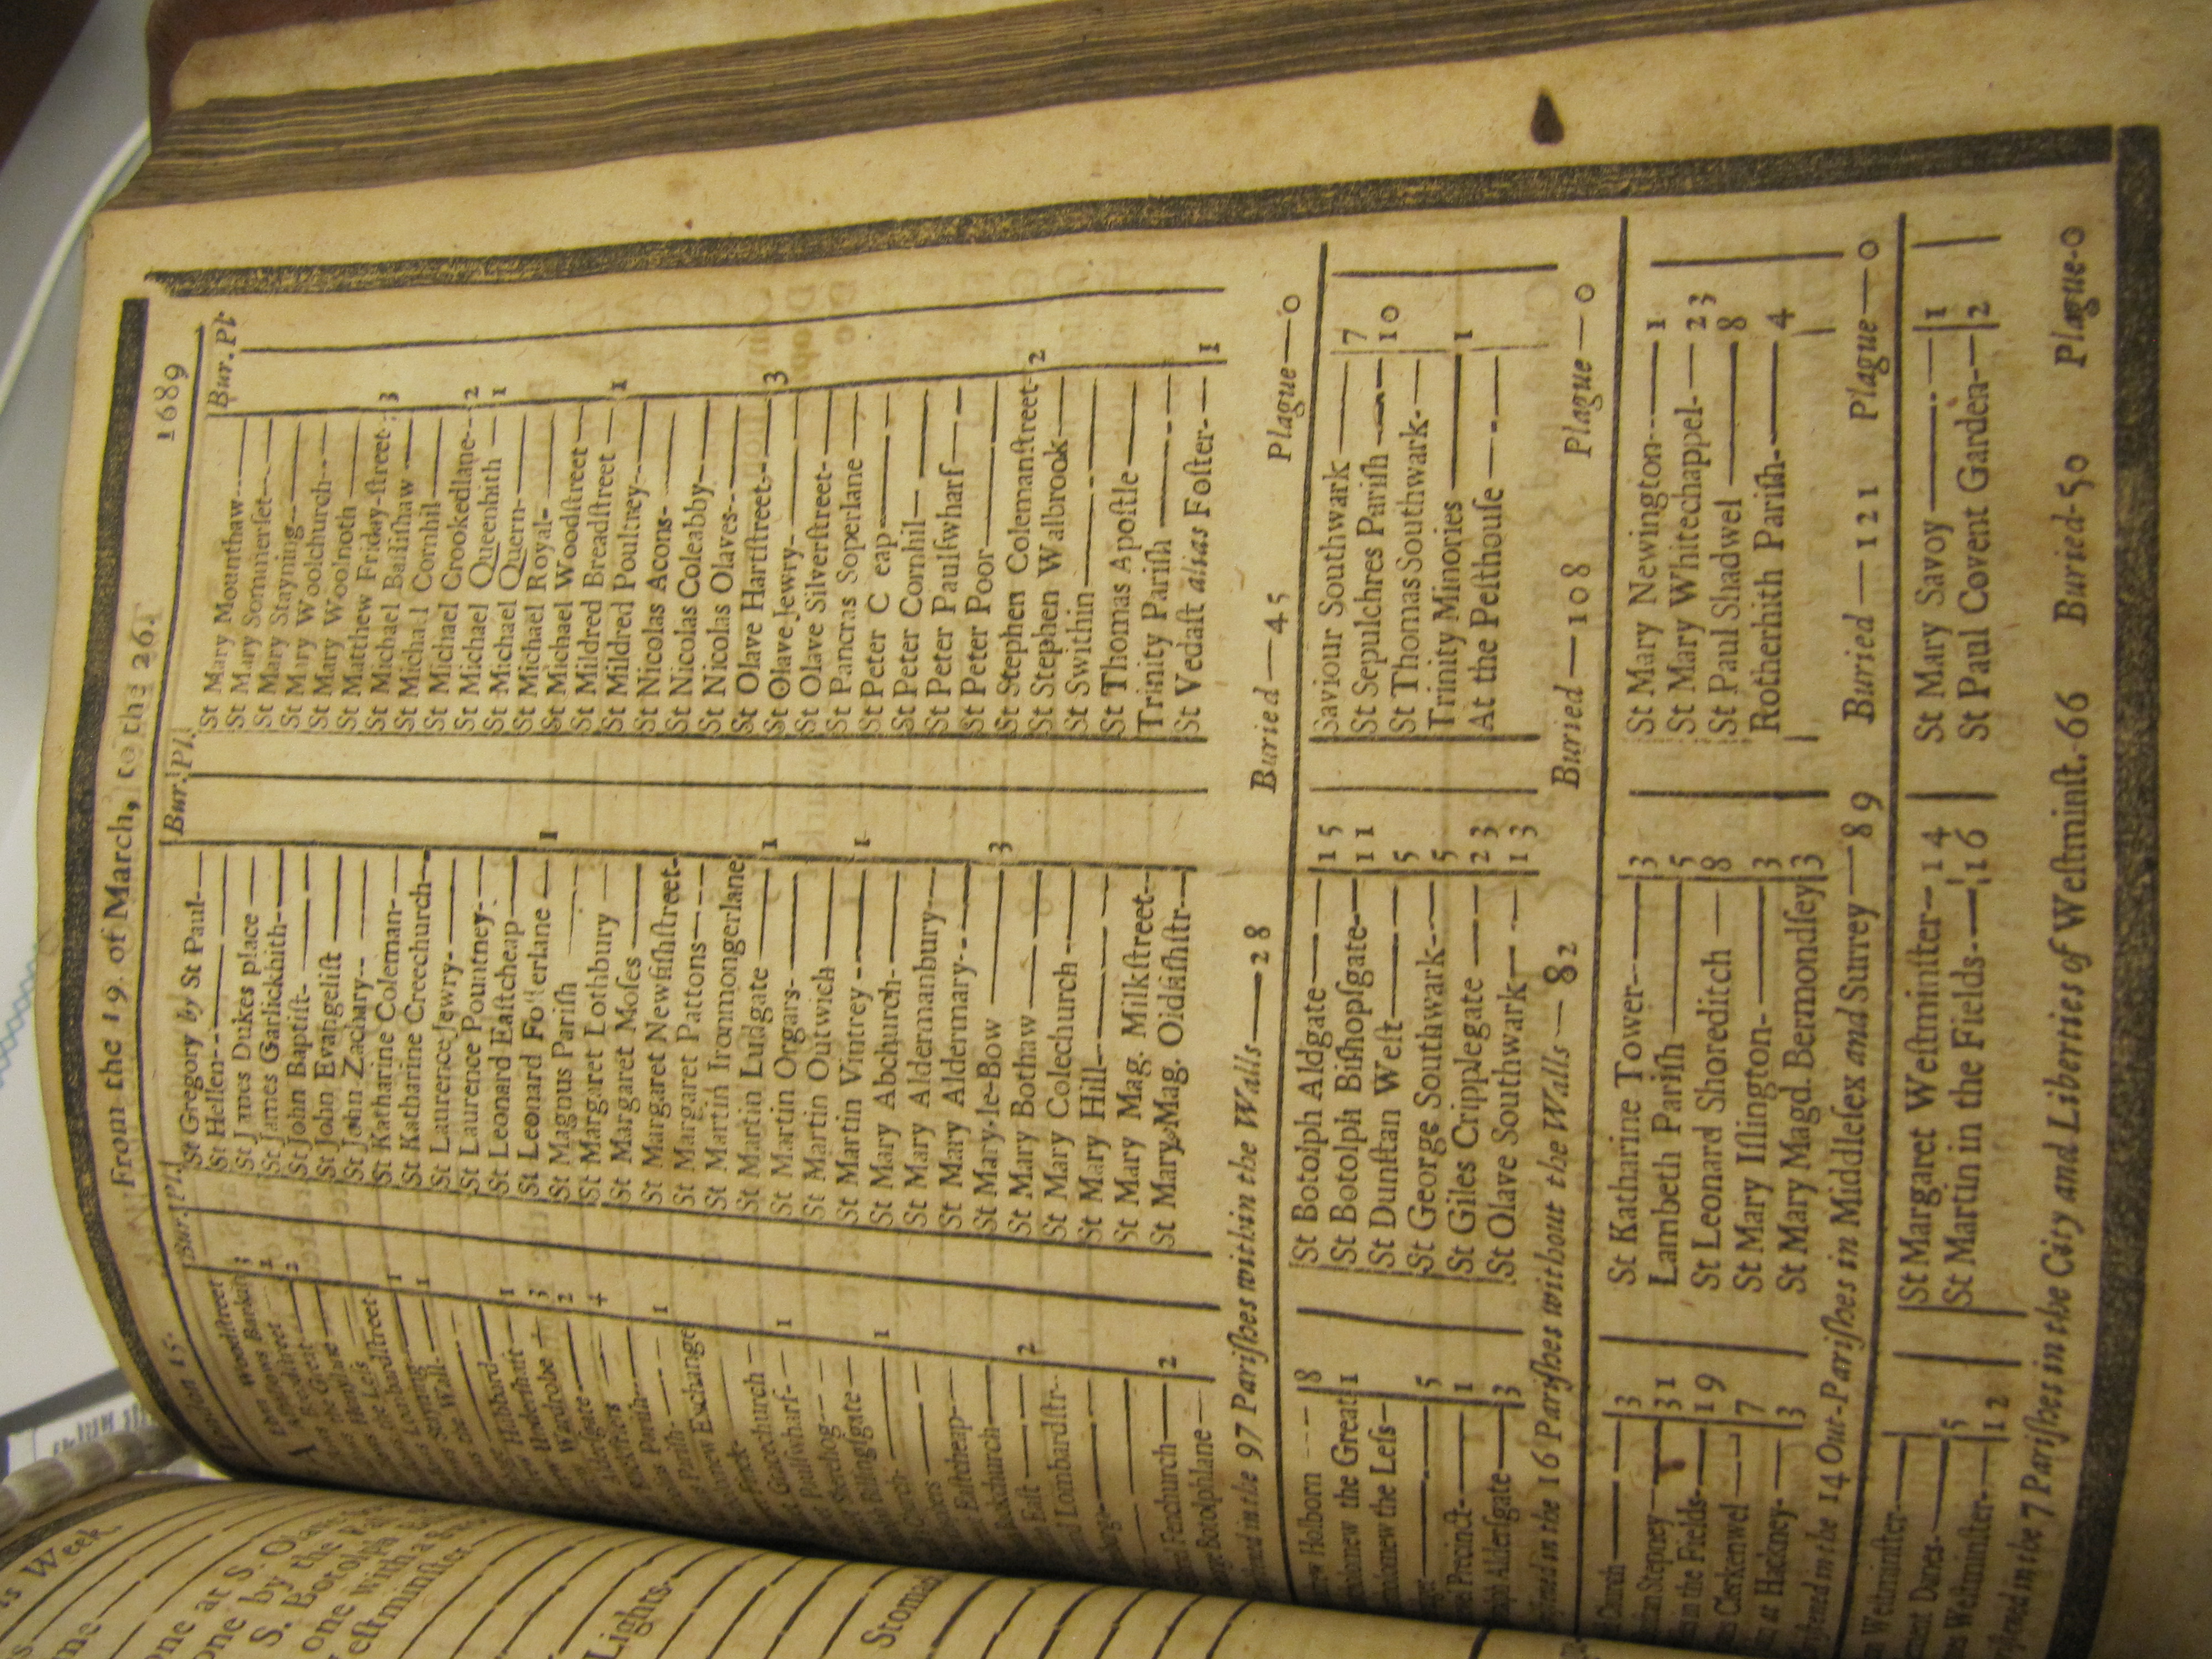 London 15. From the 19. of March, to the 26. 1689
Bur. Pl.
Woodstreet
Barking 3
Breadstreet 2
the Great 2
the Less
Lumbardstreet 1
Stayning 1
the Wall
Hubbard 1
Undershaft 3
Wardrobe 2
Aldersgate 4
Blackfriers
Parish 1
Parish
Exchange
Finck
Gracechurch
Paulswharf 1
Sherehog
Billingsgate
Church 1
Eastcheap
Backchurch
East 2
Lombardstr.
Fenchurch 2
Botolphlane
Bur. Pl.
St Gregory by St Paul
St Hellen
St James Dukes place
St James Garlickhith
St John Baptist
St John Evangelist
St John Zachary
St Katharine Coleman
St Katharine Creechurch
St Laurence Jewry
St Laurence Pountney
St Leonard Eastcheap
St Leonard Fosterlane 1
St Magnus Parish
St Margaret Lothbury
St Margaret Moses
St Margaret Newfishstreet
St Margaret Pattons
St Martin Ironmongerlane
St Martin Ludgate 1
St Martin Orgars
St Martin Outwich
St Martin Vintrey 1
St Mary Abchurch
St Mary Aldermanbury
St Mary Aldermary
St Mary-le-Bow 3
St Mary Bothaw
St Mary Colechurch
St Mary Hill
St Mary Mag. Milkstreet
St Mary Mag. Oldfishstr
Bur. Pl
St Mary Mounthaw
St Mary Sommerset
St Mary Stayning
St Mary Woolchurch
St Mary Woolnoth
St Matthew Friday-street 3
St Michael Basishaw
St Michael Cornhil
St Michael Crookedlane 2
St Michael Queenhith 1
St Michael Quern
St Michael Royal
St Michael Woodstreet
St Mildred Breadstreet 1
St Mildred Poultney
St Nicolas Acons
St Nicolas Coleabby
St Nicolas Olaves
St Olave Hartstreet 3
St Olave Jewry
St Olave Silverstreet
St Pancras Soperlane
St Peter C eap
St Peter Cornhil
St Peter Paulswharf
St Peter Poor
St Stephen Colemanstreet 2
St Stephen Walbrook
St Swithin
St Thomas Apostle
Trinity Parish
St Vedast alias Foster 1
in the 97 Parishes within the Walls—28 Buried—45 Plague—0
Holborn 18
the Great 1
the Less
5
Precinct 1
Aldersgate 3
St Botolph Aldgate 15
St Botolph Bishopsgate 11
St Dunstan West 5
St George Southwark 5
St Giles Cripplegate 23
St Olave Southwark 13
Saviour Southwark 7
St Sepulchres Parish 10
St Thomas Southwark
Trinity Minories 1
At the Pesthouse
in the 16 Parishes without the Walls—82 Buried—108 Plague—0
Church 3
Stepney 31
in the Fields 19
Clerkenwel 7
at Hackney 3
St Katharine Tower 3
Lambeth Parish 5
St Leonard Shoreditch 8
St Mary Islington 3
St Mary Magd. Bermondsey 3
St Mary Newington 1
St Mary Whitechappel 23
St Paul Shadwel 8
Rotherhith Parish 4
in the 14 Out-Parishes in Middlesex and Surrey—89 Buried—121 Plague—0
Westminster
Danes 5
Westminster 12
St Margaret Westminster 14
St Martin in the Fields 16
St Mary Savoy 1
St Paul Covent Garden 2
in the 7 Parishes in the City and Liberties of Westminst. 66 Buried-50 Plague-0
Week
one at S. Olav
one by the
S. Botolph
one with a
Lights